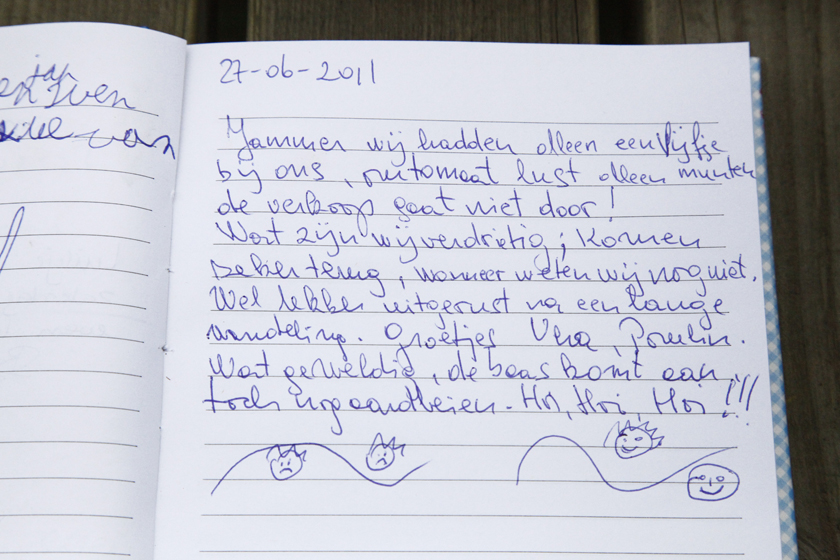 jan
en Sven
van
27-06-2011
Jammer wij hadden alleen een Vijfje
bij ons, automaat lust alleen munten
de verkoop gaat niet door!
Wat zijn wij verdrietig; Komen
zeker terug, wanneer weten wij nog niet.
Wel lekker uitgerust na een lange
wandeling. Groetjes Vera, Paulin.
Wat geweldig, de baas komt aan,
toch nog aardbeien. Hoi, Hoi, Hoi!!!